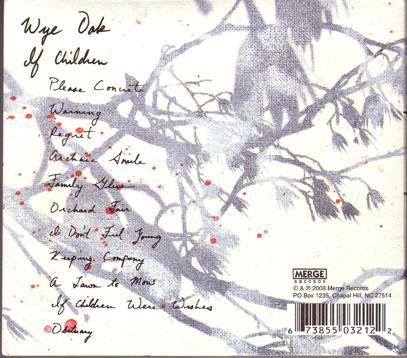 Wye Oak
If Children
Please Concrete
Warning
Regret
Archaic Smile
Family Glue
Orchard Fair
I Don't Feel Young
Keeping Company
A Lawn to Mow
If Children Were Wishes
Obituary
MERGE
RECORDS
© & ℗ 2008 Merge Records
PO Box 1235, Chapel Hill, NC 27514
6 73855 03212 2